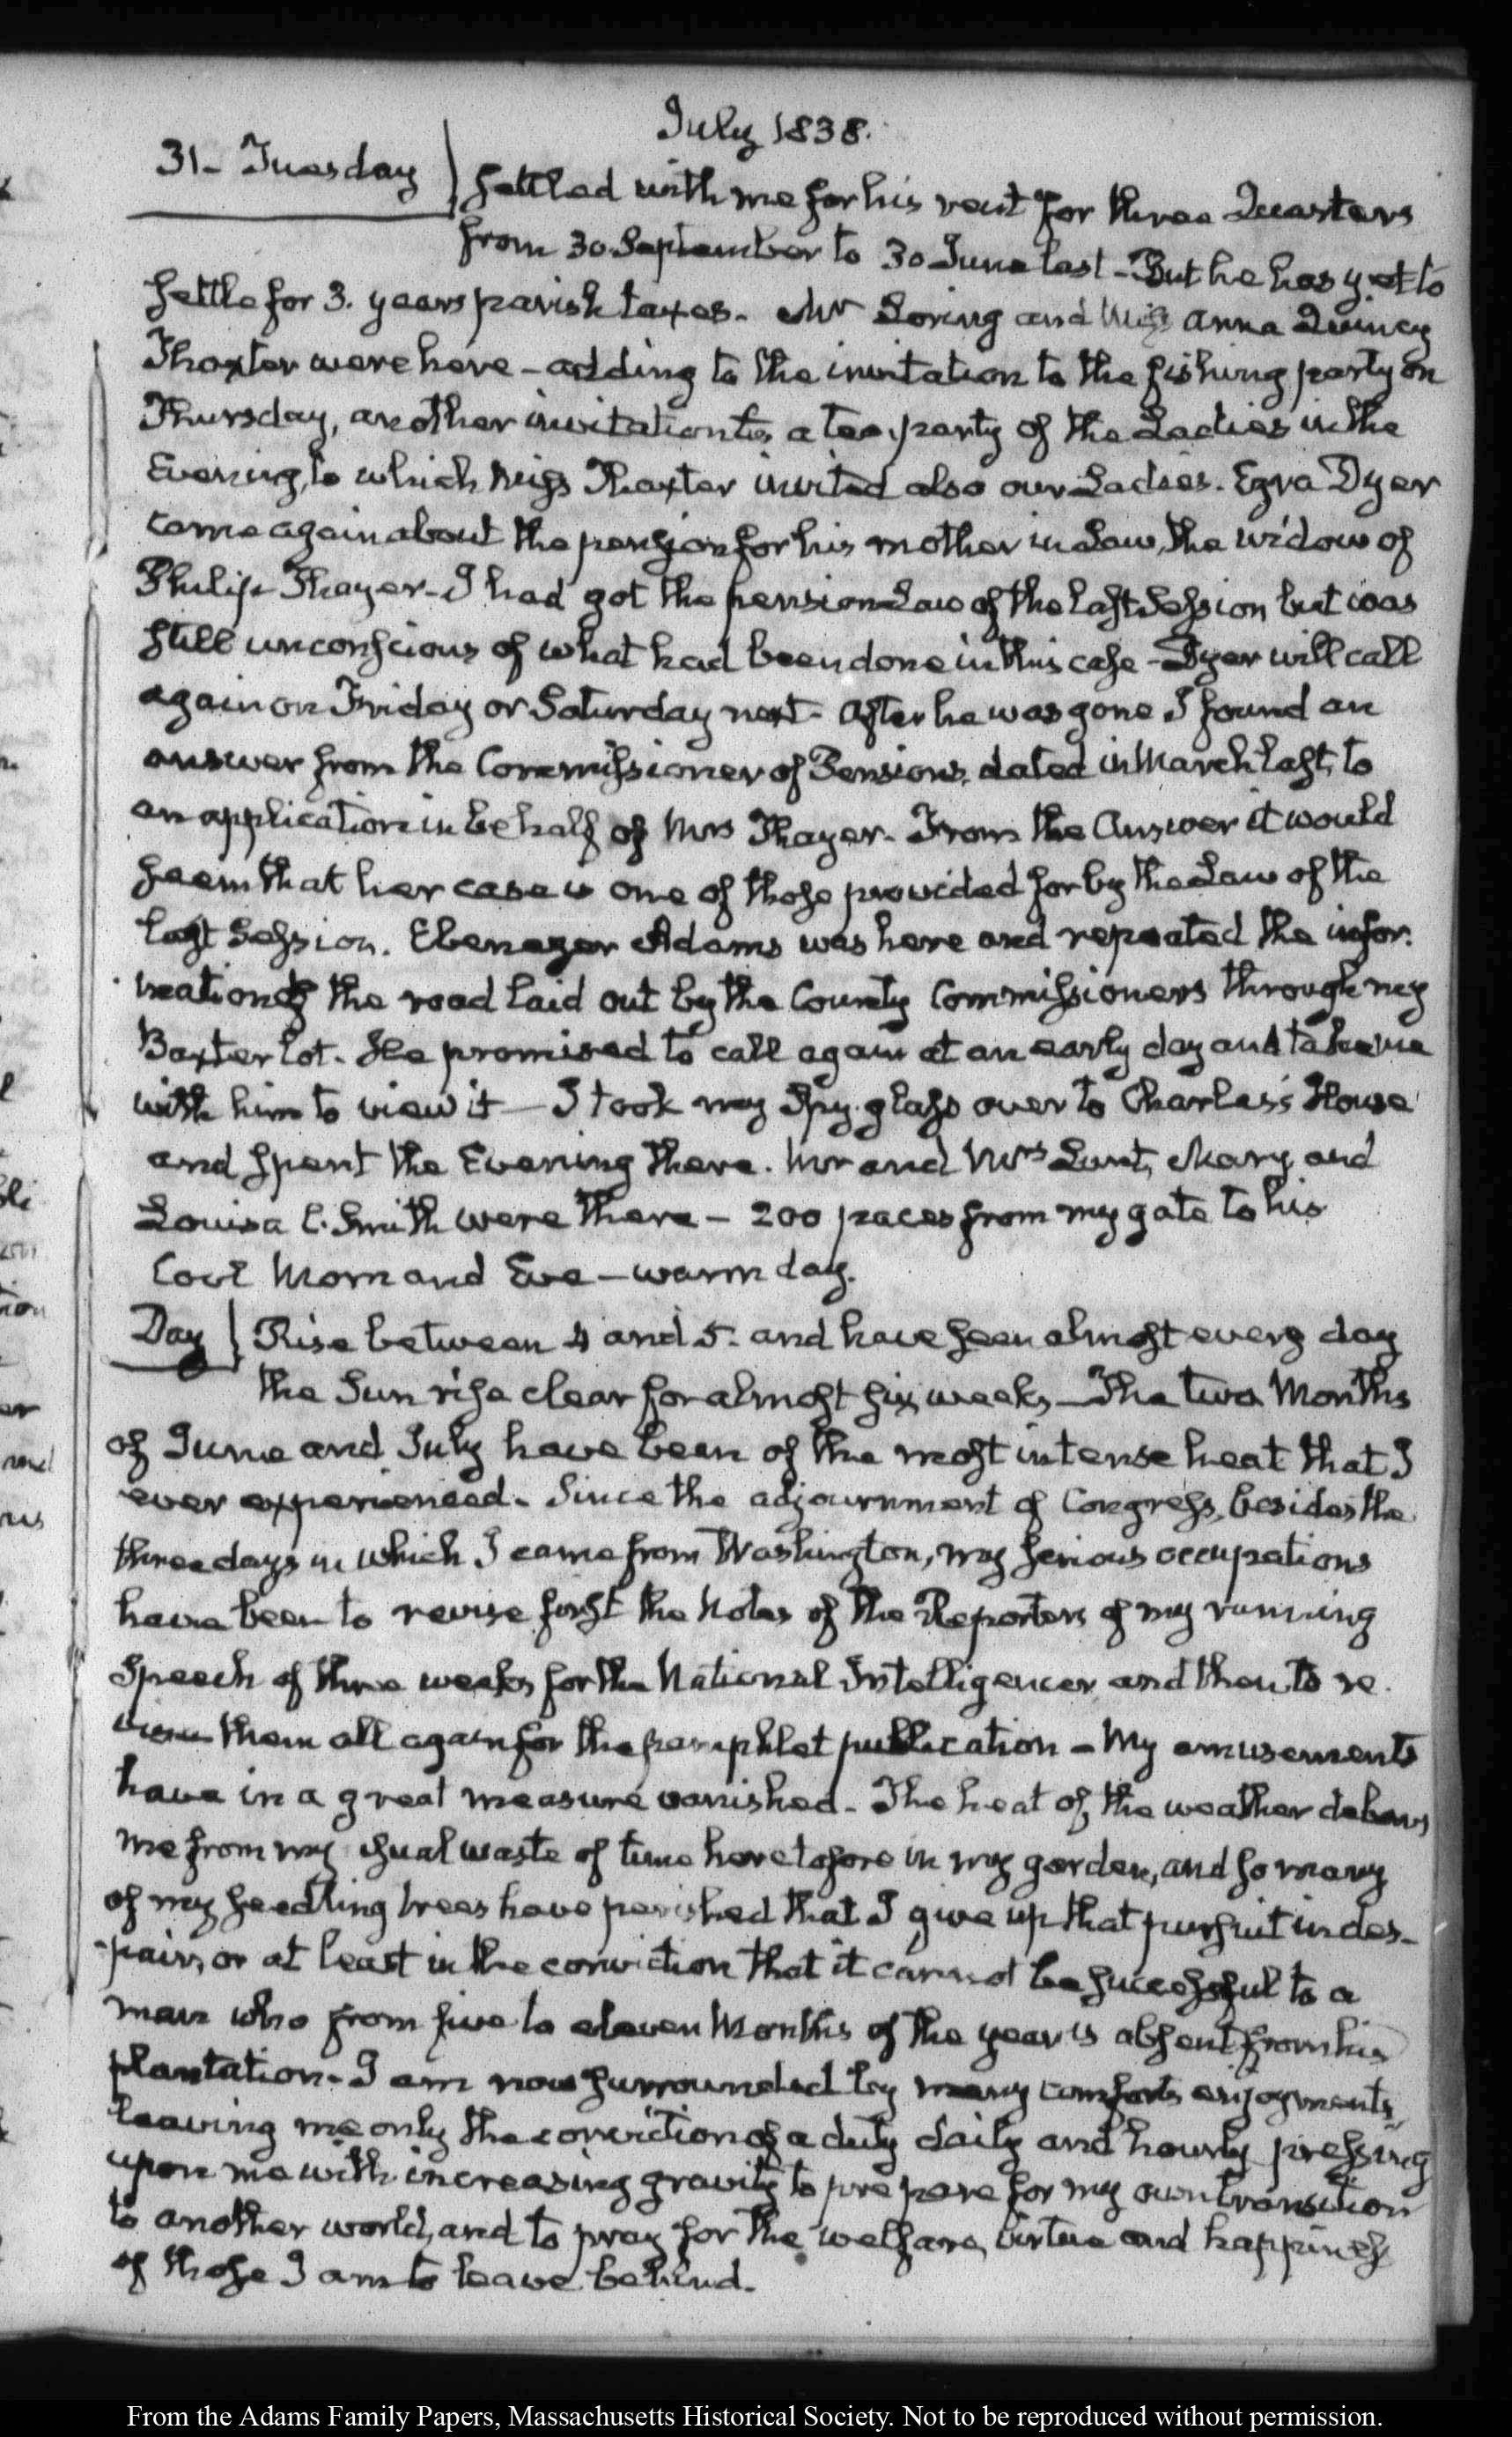 July 1838.
31- Tuesday
settled with me for his rent for three Quarters
from 30 September to 30 June last - But he has yet to
settle for 3. years parish taxes. Mr Loring and Miss Anna Quincy
Thaxter were here - adding to the invitation to the fishing party on
Thursday, another invitation to a tea party of the Ladies in the
Evening, to which Miss Thaxter invited also our Ladies. Ezra Dyer
came again about the pension for his mother in Law, the widow of
Philip Thayer - I had got the pension Law of the last Session but was
still unconscious of what had been done in this case - Dyer will call
again on Friday or Saturday next - After he was gone I found an
answer from the Commissioner of Pensions, dated in March last, to
an application in behalf of Mrs Thayer. From the Answer it would
seem that her case is one of those provided for by the Law of the
last Session. Ebenezer Adams was here and repeated the infor-
mation of the road laid out by the County Commissioners through my
Baxter lot. He promised to call again at an early day and take me
with him to view it — I took my Spy-glass over to Charles's House
and spent the Evening there. Mr and Mrs Lunt, Mary and
Louisa C. Smith were there - 200 paces from my gate to his
Cool Morn and Eve - warm day.
Day
Rise between 4 and 5. and have seen almost every day
the Sun rise clear for almost six weeks - The two Months
of June and July have been of the most intense heat that I
ever experienced - Since the adjournment of Congress, besides the
three days in which I came from Washington, my serious occupations
have been to revise first the Notes of the Reporters of my running
Speech of three weeks for the National Intelligencer and then to re-
view them all again for the pamphlet publication - My amusements
have in a great measure vanished - The heat of the weather debars
me from my usual waste of time heretofore in my garden, and so many
of my seedling trees have perished that I give up that pursuit in des-
-pair, or at least in the conviction that it cannot be successful to a
man who from five to eleven Months of the year is absent from his
plantation - I am now surrounded by many comforts enjoyments,
leaving me only the conviction of a duty daily and hourly pressing
upon me with increasing gravity to prepare for my own transition
to another world, and to pray for the welfare, virtue and happiness
of those I am to leave behind.
From the Adams Family Papers, Massachusetts Historical Society. Not to be reproduced without permission.